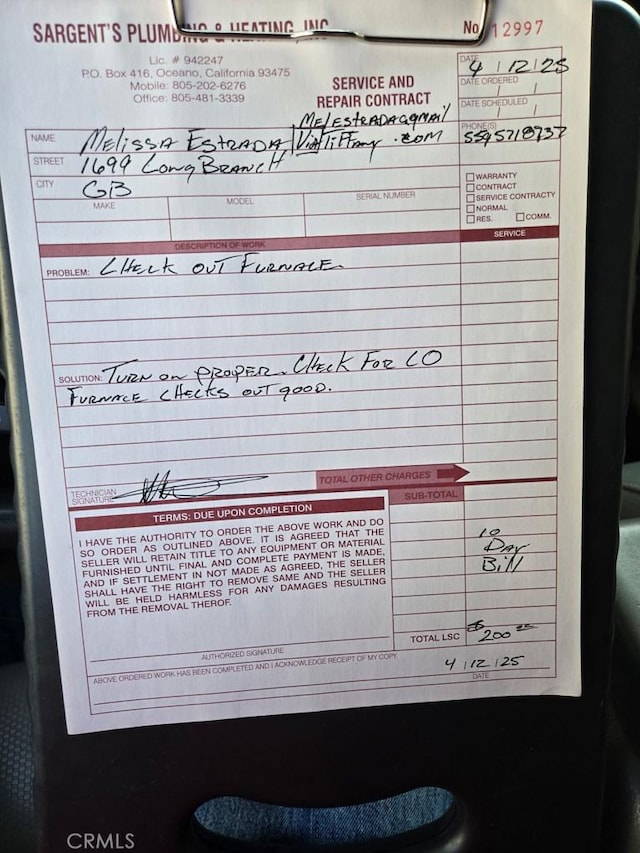 SARGENT'S PLUMBING & HEATING, INC
No 12997
Lic. # 942247
P.O. Box 416, Oceano, California 93475
Mobile: 805-202-6276
Office: 805-481-3339
SERVICE AND
REPAIR CONTRACT
DATE 4/12/25
DATE ORDERED / /
DATE SCHEDULED / /
PHONE(S) 5595718737
MELESTRADA@GMAIL
.COM
NAME MELISSA ESTRADA Via Tiffany
STREET 1699 LONG BRANCH
CITY GB
MAKE MODEL SERIAL NUMBER
WARRANTY
CONTRACT
SERVICE CONTRACTY
NORMAL
RES. COMM.
DESCRIPTION OF WORK SERVICE
PROBLEM: CHECK OUT FURNACE.
SOLUTION: TURN ON PROPER. CHECK FOR CO
FURNACE CHECKS OUT GOOD.
TECHNICIAN
SIGNATURE
TOTAL OTHER CHARGES
SUB-TOTAL
TERMS: DUE UPON COMPLETION
I HAVE THE AUTHORITY TO ORDER THE ABOVE WORK AND DO
SO ORDER AS OUTLINED ABOVE. IT IS AGREED THAT THE
SELLER WILL RETAIN TITLE TO ANY EQUIPMENT OR MATERIAL
FURNISHED UNTIL FINAL AND COMPLETE PAYMENT IS MADE,
AND IF SETTLEMENT IN NOT MADE AS AGREED, THE SELLER
SHALL HAVE THE RIGHT TO REMOVE SAME AND THE SELLER
WILL BE HELD HARMLESS FOR ANY DAMAGES RESULTING
FROM THE REMOVAL THEROF.
10
Day
Bill
TOTAL LSC $200
AUTHORIZED SIGNATURE
ABOVE ORDERED WORK HAS BEEN COMPLETED AND I ACKNOWLEDGE RECEIPT OF MY COPY.
4/12/25
DATE
CRMLS